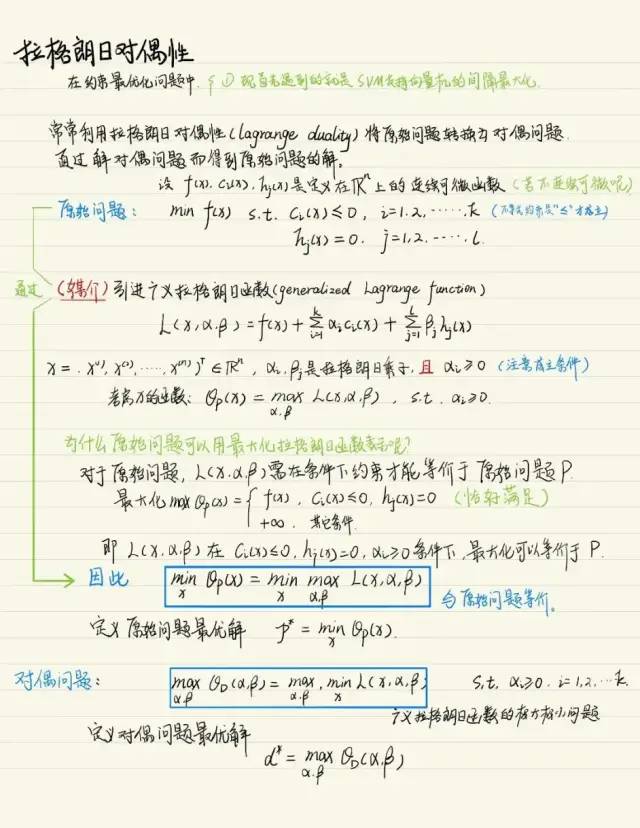 拉格朗日对偶性
在约束最优化问题中, ① 现首先遇到的就是SVM支持向量机的间隔最大化.
常常利用拉格朗日对偶性(Lagrange duality)将原始问题转换为对偶问题.
通过解对偶问题而得到原始问题的解。
设 f(x), ci(x), hj(x)是定义在ℝⁿ上的连续可微函数 (若不连续可微呢)
原始问题: min f(x) s.t. ci(x)≤0, i=1,2,……k (不等式约束是"≤"才成立)
hj(x)=0. j=1,2,……l.
通过 (媒介) 引进广义拉格朗日函数(generalized Lagrange function)
L(x,α,β) = f(x) + Σ_{i=1}^{k} αi ci(x) + Σ_{j=1}^{l} βj hj(x)
x = . x⁽¹⁾, x⁽²⁾, ……, x⁽ⁿ⁾)ᵀ ∈ ℝⁿ, αi, βj是拉格朗日乘子, 且 αi≥0 (注意成立条件)
考虑x的函数: θp(x) = max_{α,β} L(x,α,β), s.t. αi≥0.
为什么原始问题可以用最大化拉格朗日函数表示呢?
对于原始问题, L(x,α,β)需在条件下约束才能等价于原始问题P.
最大化 max θp(x) = { f(x), ci(x)≤0, hj(x)=0 (恰好满足)
+∞. 其它条件.
即 L(x,α,β) 在 ci(x)≤0, hj(x)=0, αi≥0 条件下, 最大化可以等价于 P.
因此 min_x θp(x) = min_x max_{α,β} L(x,α,β) 与原始问题等价。
定义原始问题最优解 p* = min_x θp(x).
对偶问题: max_{α,β} θD(α,β) = max_{α,β}, min_x L(x,α,β) s.t. αi≥0. i=1,2,…k.
广义拉格朗日函数的极大极小问题
定义对偶问题最优解
d* = max_{α,β} θD(α,β)